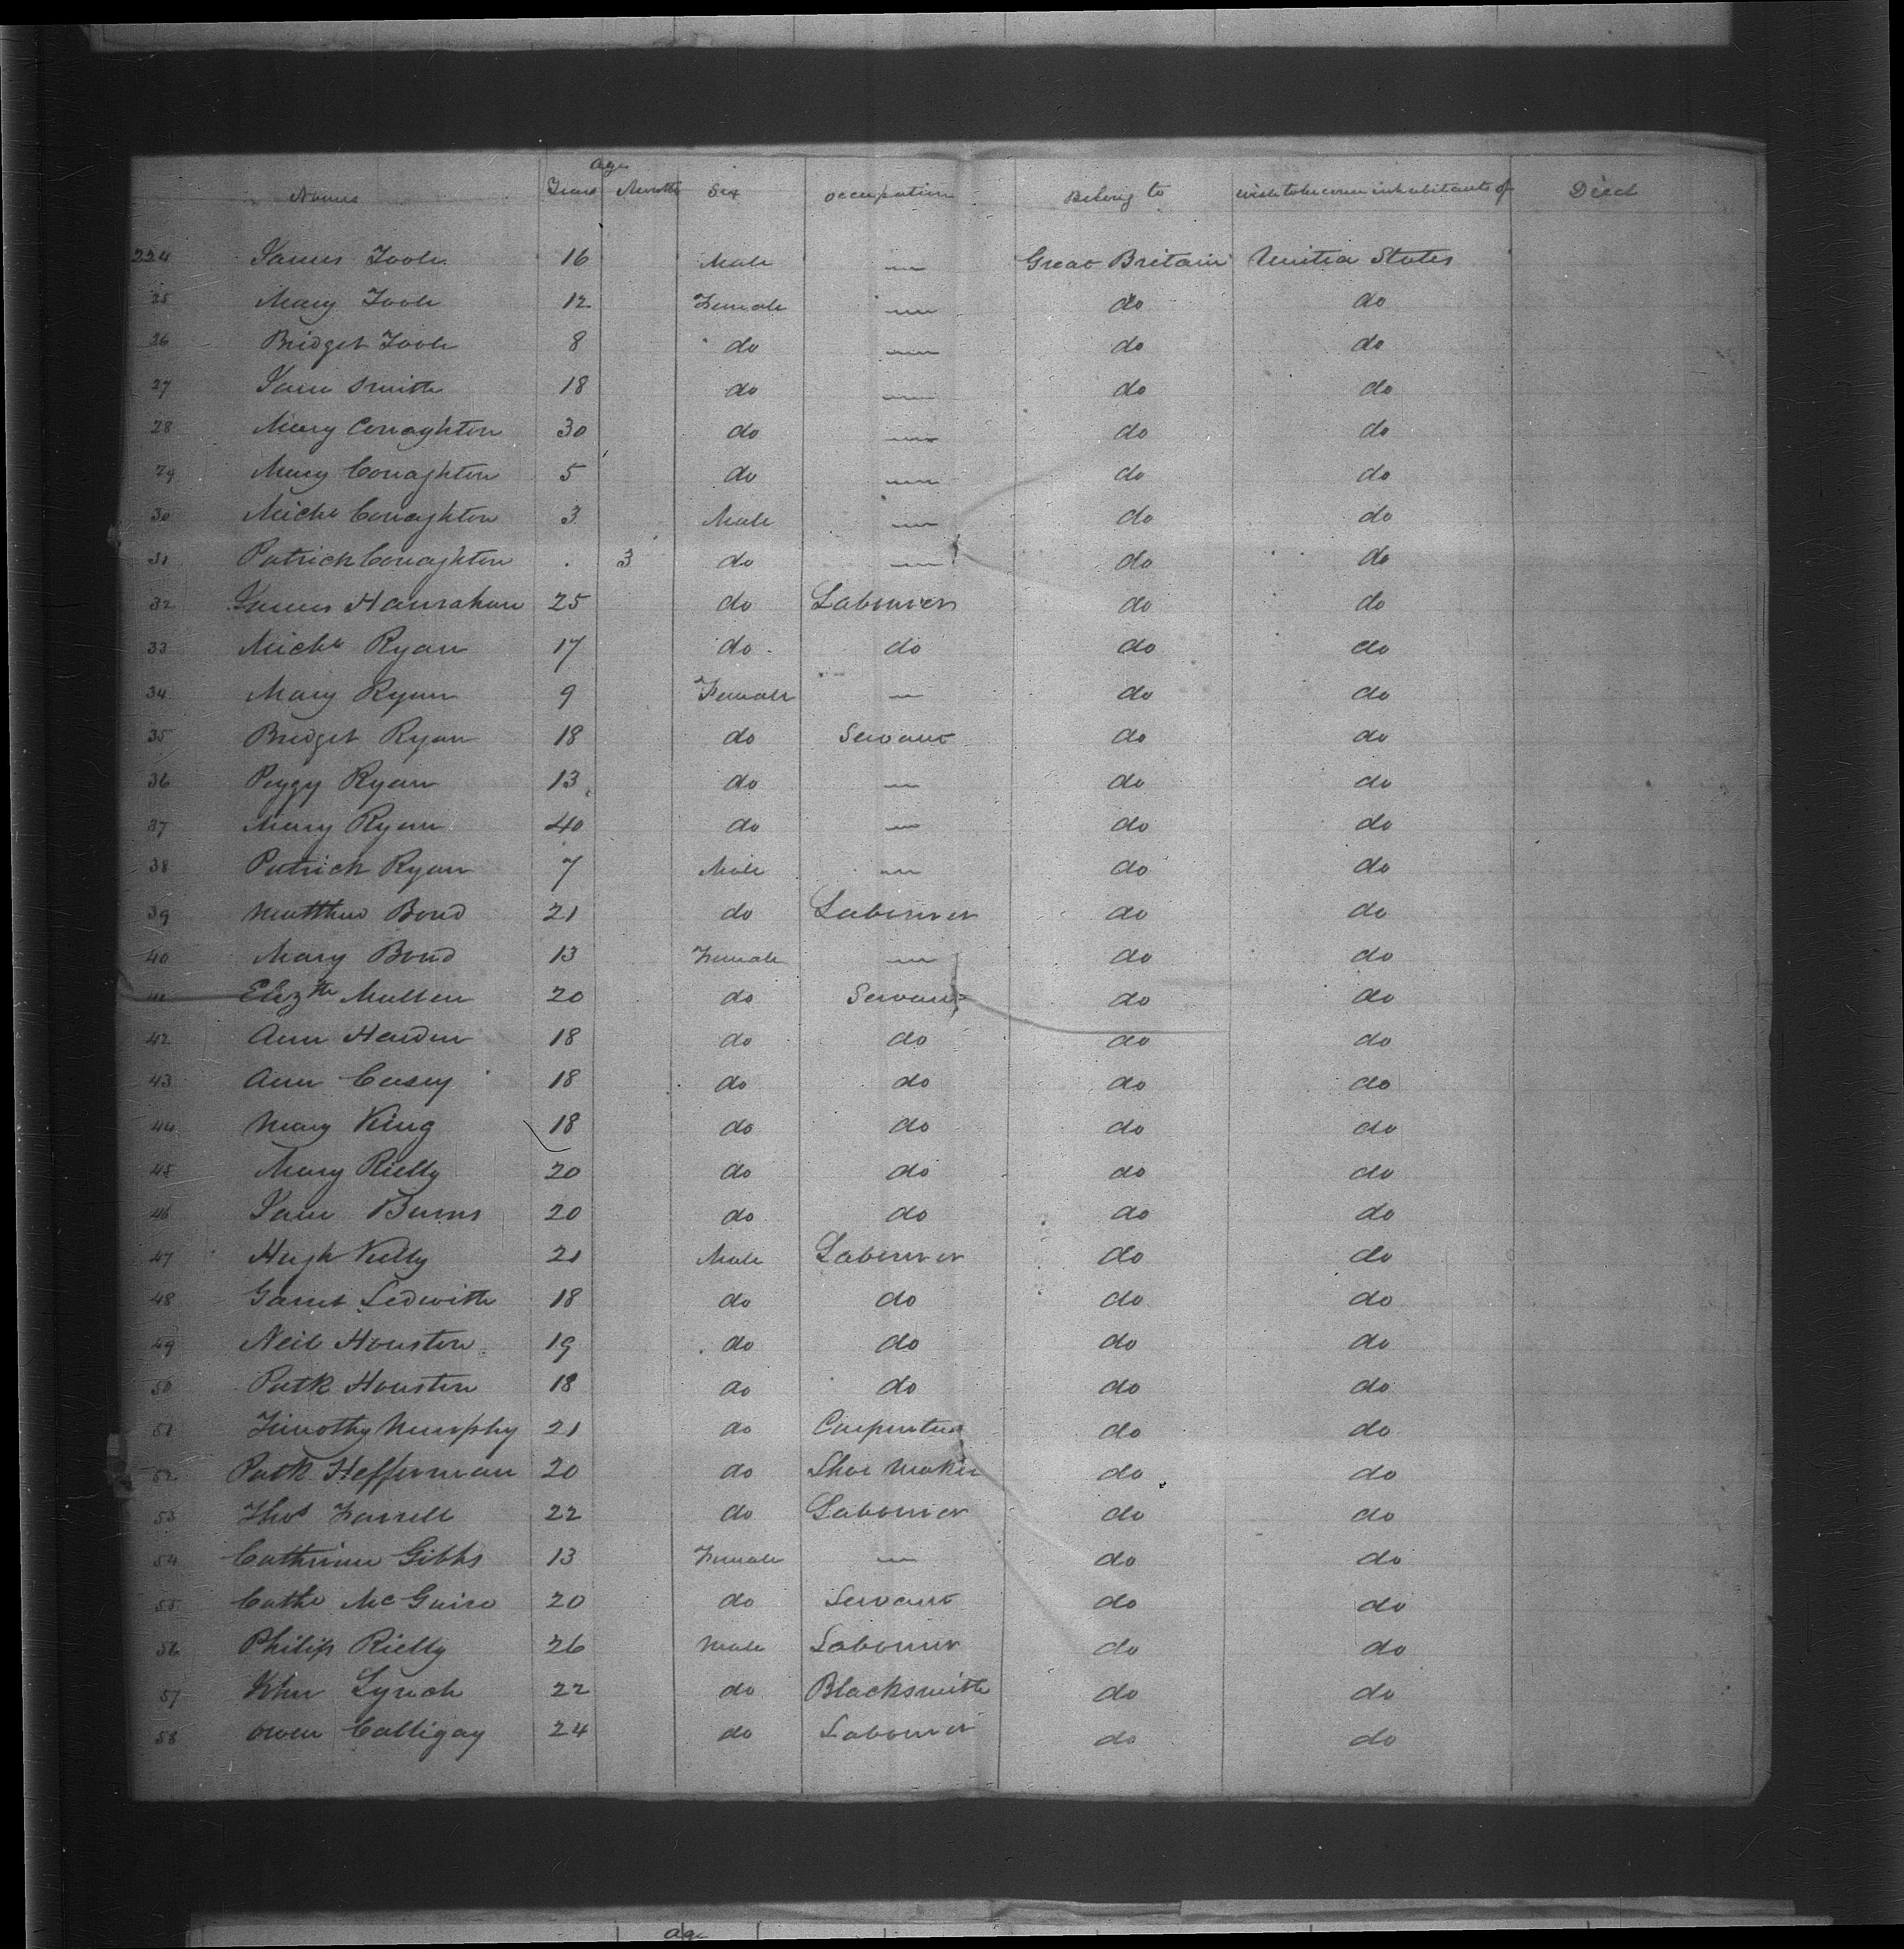 Age
Names Years Months Sex occupation Belong to wish to become inhabitants of Died
224 James Toole 16 Male — Great Britain United States
25 Mary Toole 12 Female — do do
26 Bridget Toole 8 do — do do
27 Jane Smith 18 do — do do
28 Mary Conaghton 30 do — do do
29 Mary Conaghton 5 do — do do
30 Michl Conaghton 3 Male — do do
31 Patrick Conaghton . 3 do — do do
32 James Hanrahan 25 do Labourer do do
33 Michl Ryan 17 do do do do
34 Mary Ryan 9 Female — do do
35 Bridget Ryan 18 do Servant do do
36 Peggy Ryan 13 do — do do
37 Mary Ryan 40 do — do do
38 Patrick Ryan 7 Male — do do
39 Matthew Bond 21 do Labourer do do
40 Mary Bond 13 Female — do do
41 Elizth Mullen 20 do Servant do do
42 Ann Harden 18 do do do do
43 Ann Casey 18 do do do do
44 Mary King 18 do do do do
45 Mary Rielly 20 do do do do
46 Jane Burns 20 do do do do
47 Hugh Kelly 21 Male Labourer do do
48 Garret Ledwith 18 do do do do
49 Neil Houston 19 do do do do
50 Patk Houston 18 do do do do
51 Timothy Murphy 21 do Carpenter do do
52 Patk Hefferman 20 do Shoe Maker do do
53 Thos Farrell 22 do Labourer do do
54 Catherine Gibbs 13 Female — do do
55 Cathe McGuire 20 do Servant do do
56 Philip Rielly 26 Male Labourer do do
57 John Lynch 22 do Blacksmith do do
58 Owen Calligay 24 do Labourer do do
Age